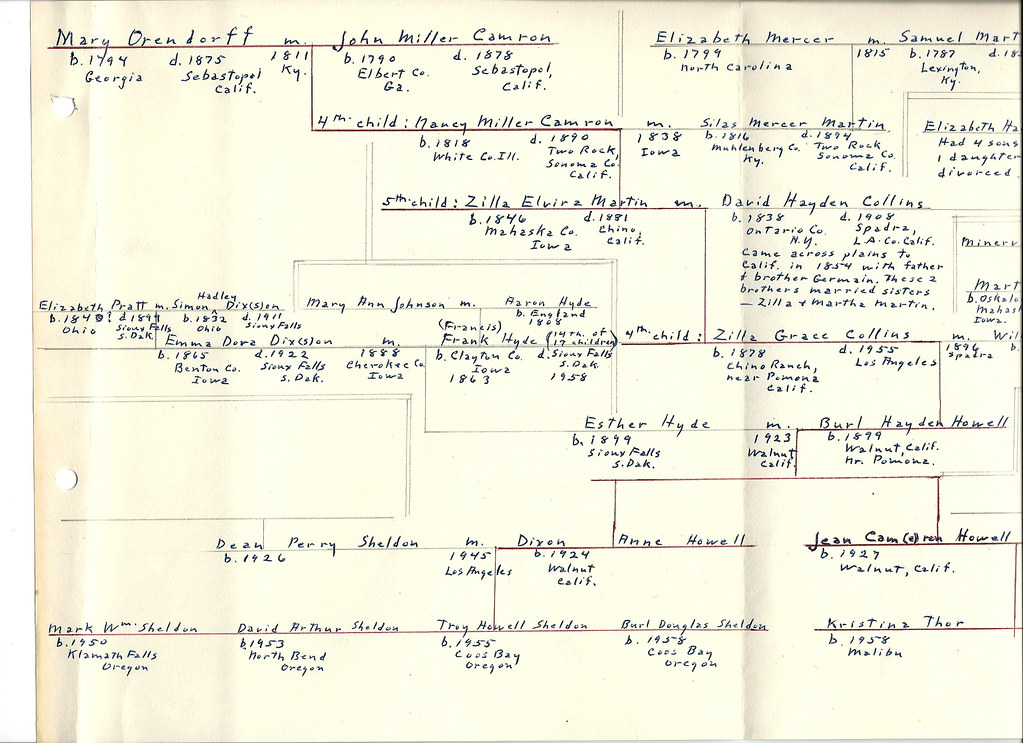 Mary Orendorff m. John Miller Camron Elizabeth Mercer m. Samuel Mart
b. 1794 d. 1875 1811 b. 1790 d. 1878 b. 1799 1815 b. 1787 d. 18
Georgia Sebastopol Ky. Elbert Co. Sebastopol, North Carolina Lexington,
Calif. Ga. Calif. Ky.
4th child: Nancy Miller Camron m. Silas Mercer Martin Elizabeth Ha
b. 1818 d. 1890 1838 b. 1816 d. 1894 Had 4 sons
White Co. Ill. Two Rock, Iowa Muhlenberg Co. Two Rock 1 daughter
Sonoma Co. Ky. Sonoma Co. divorced
Calif. Calif.
5th child: Zilla Elvira Martin m. David Hayden Collins
b. 1846 d. 1881 b. 1838 d. 1908
Mahaska Co. Chino, Ontario Co. Spadra,
Iowa Calif. N.Y. L.A. Co. Calif.
Came across plains to
Calif. in 1854 with father
& brother Germain. These 2
brothers married sisters
— Zilla & Martha Martin.
Minerv
Mart
b. Oskalo
Mahas
Iowa.
Hadley
Elizabeth Pratt m. Simon Dix(s)on Mary Ann Johnson m. Aaron Hyde
d. 1899 b. 1832 d. 1911 b. England
Ohio Sioux Falls Ohio Sioux Falls 1808
S. Dak.
(Francis) (14th of
Emma Dora Dix(s)on m. Frank Hyde 17 children) 4th child: Zilla Grace Collins m. Wil
b. 1865 d. 1922 1888 b. Clayton Co. d. Sioux Falls b. 1878 d. 1955 1896 b.
Benton Co. Sioux Falls Cherokee Co. Iowa S. Dak. Chino Ranch, Los Angeles Spadra
Iowa S. Dak. Iowa 1863 1958 near Pomona
Calif.
Esther Hyde m. Burl Hayden Howell
b. 1899 1923 b. 1899
Sioux Falls Walnut Walnut, Calif.
S. Dak. Calif. nr. Pomona.
Dean Perry Sheldon m. Dixon Anne Howell Jean Cam(e)ron Howell
b. 1926 1945 b. 1924 b. 1927
Los Angeles Walnut Walnut, Calif.
Calif.
Mark Wm. Sheldon David Arthur Sheldon Troy Howell Sheldon Burl Douglas Sheldon Kristina Thor
b. 1950 b. 1953 b. 1955 b. 1958 b. 1958
Klamath Falls North Bend Coos Bay Coos Bay Malibu
Oregon Oregon Oregon Oregon